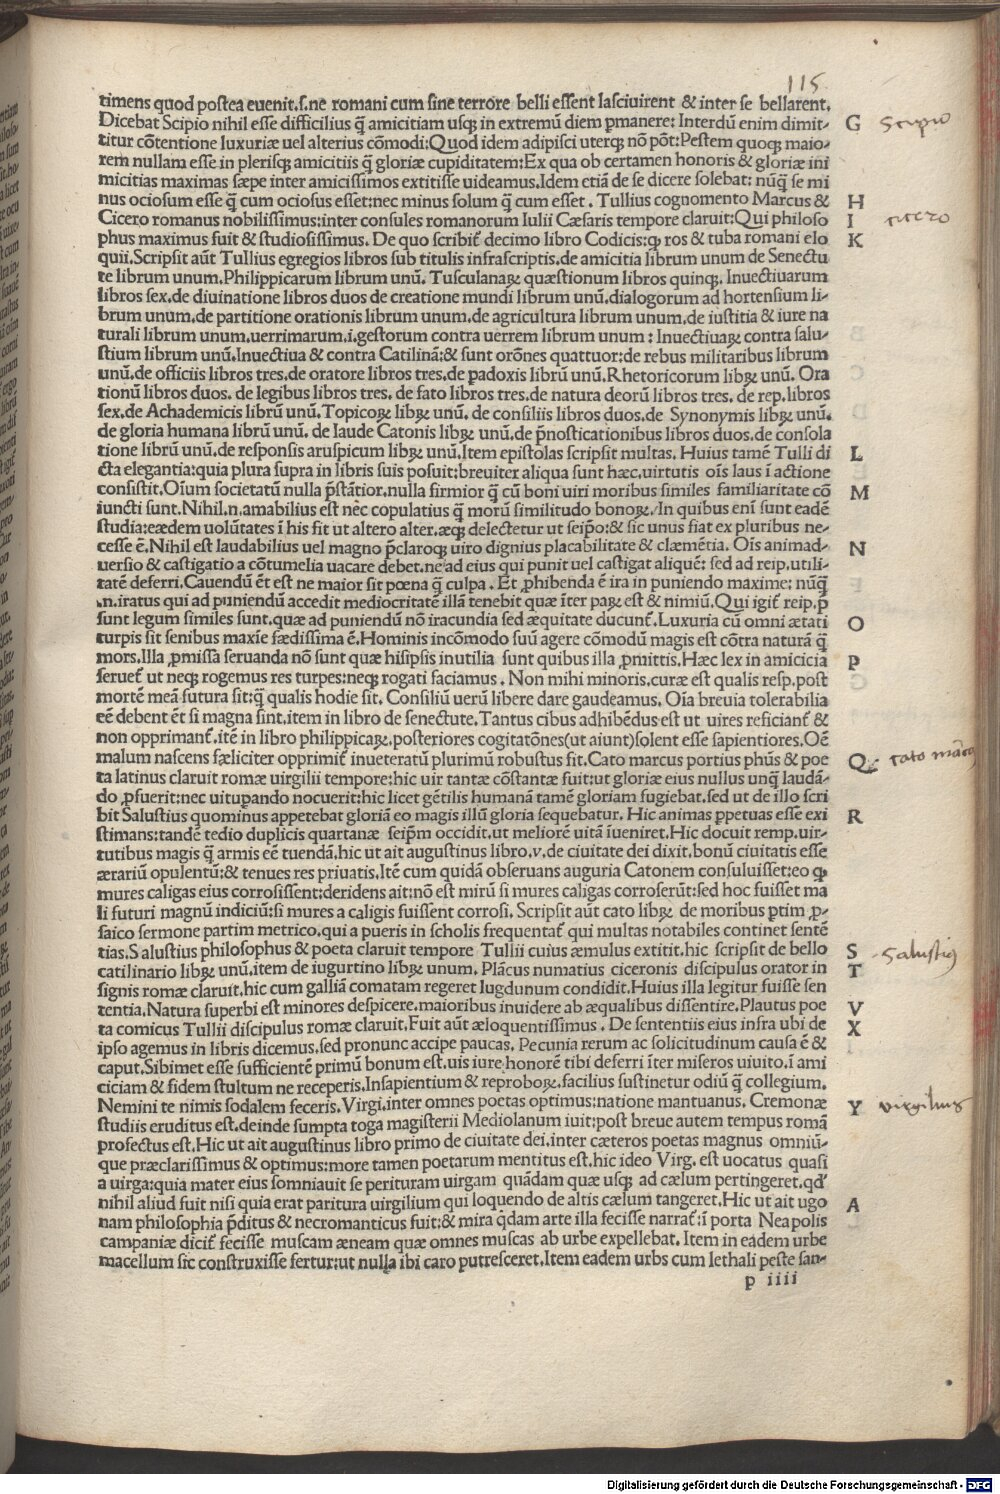 115
timens quod postea euenit.s.ne romani cum sine terrore belli essent lasciuirent & inter se bellarent.
Dicebat Scipio nihil esse difficilius q̃ amicitiam usqꝫ in extremũ diem ꝑmanere: Interdũ enim dimit-
G Scipio
titur cõtentione luxuriæ uel alterius cõmodi: Quod idem adipisci uterqꝫ nõ põt: Pestem quoqꝫ maio-
rem nullam esse in plerisqꝫ amicitiis q̃ gloriæ cupiditatem: Ex qua ob certamen honoris & gloriæ ini
micitias maximas sæpe inter amicissimos extitisse uideamus. Idem etiã de se dicere solebat: nũq̃ se mi
nus ociosum esse q̃ cum ociosus esset: nec minus solum q̃ cum esset. Tullius cognomento Marcus &
H
Cicero romanus nobilissimus: inter consules romanorum Iulii Cæsaris tempore claruit: Qui philoso
I cicero
phus maximus fuit & studiosissimus. De quo scribit̃ decimo libro Codicis: ꝙ ros & tuba romani elo
K
quii. Scripsit aũt Tullius egregios libros sub titulis infrascriptis. de amicitia librum unum de Senectu
te librum unum. Philippicarum librum unũ. Tusculanaꝝ quæstionum libros quinqꝫ. Inuectiuarum
libros sex. de diuinatione libros duos de creatione mundi librum unũ. dialogorum ad hortensium li-
brum unum. de partitione orationis librum unum. de agricultura librum unum. de iustitia & iure na
turali librum unum. uerrimarum. i. gestorum contra uerrem librum unum: Inuectiuaꝝ contra salu-
stium librum unũ. Inuectiua & contra Catilinã: & sunt orõnes quattuor: de rebus militaribus librum
unũ. de officiis libros tres. de oratore libros tres. de ꝑadoxis librũ unũ. Rhetoricorum libꝝ unũ. Ora
tionũ libros duos. de legibus libros tres. de fato libros tres. de natura deorũ libros tres. de rep. libros
sex. de Achademicis librũ unũ. Topicoꝝ libꝝ unũ. de consiliis libros duos. de Synonymis libꝝ unũ.
de gloria humana librũ unũ. de laude Catonis libꝝ unũ. de p̃nosticationibus libros duos. de consola
tione librũ unũ. de responsis aruspicum libꝝ unũ. Item epistolas scripsit multas. Huius tamẽ Tulli di
L
cta elegantia: quia plura supra in libris suis posuit: breuiter aliqua sunt hæc. uirtutis oĩs laus ĩ actione
consistit. Oĩum societatũ nulla p̃stãtior. nulla firmior q̃ cũ boni uiri moribus similes familiaritate cõ
M
iuncti sunt. Nihil. n. amabilius est nec̃ copulatius q̃ morũ similitudo bonoꝝ. In quibus enĩ sunt eadẽ
studia: eædem uolũtates ĩ his fit ut altero alter. æqꝫ delectetur ut seip̃o: & sic unus fiat ex pluribus ne-
cesse ẽ. Nihil est laudabilius uel magno p̃claroqꝫ uiro dignius placabilitate & clæmẽtia. Oĩs animad-
N
uersio & castigatio a cõtumelia uacare debet. ne ad eius qui punit uel castigat aliquẽ: sed ad reip. utili-
tatẽ deferri. Cauendũ ẽt est ne maior sit pœna q̃ culpa. Et ꝓhibenda ẽ ira in puniendo maxime: nũq̃
.n. iratus qui ad puniendũ accedit mediocritatẽ illã tenebit quæ ĩter paꝝ est & nimiũ. Qui igit̃ reip. p̃
sunt legum similes sunt. quæ ad puniendũ nõ iracundia sed æquitate ducunt̃. Luxuria cũ omni ætati
O
turpis sit senibus maxĩe fædissima ẽ. Hominis incõmodo suũ agere cõmodũ magis est cõtra naturã q̃
mors. Illa ꝓmissa seruanda nõ sunt quæ hisipsis inutilia sunt quibus illa ꝓmittis. Hæc lex in amicicia
P
seruet̃ ut neqꝫ rogemus res turpes: neqꝫ rogati faciamus. Non mihi minoris. curæ est qualis resp. post
mortẽ meã futura sit: q̃ qualis hodie sit. Consiliũ uerũ libere dare gaudeamus. Oĩa breuia tolerabilia
eẽ debent ẽt si magna sint. item in libro de senectute. Tantus cibus adhibẽdus est ut uires reficiant̃ &
non opprimant̃. itẽ in libro philippicaꝝ. posteriores cogitatõnes (ut aiunt) solent esse sapientiores. Oẽ
malum nascens fæliciter opprimit̃ inueteratũ plurimũ robustus fit. Cato marcus portius phũs & poe
Q cato
ta latinus claruit romæ uirgilii tempore: hic uir tantæ cõstantæ fuit: ut gloriæ eius nullus unq̃ laudã-
do ꝓfuerit: nec uituꝑando nocuerit: hic licet gẽtilis humanã tamẽ gloriam fugiebat. sed ut de illo scri
bit Salustius quominus appetebat gloriã eo magis illũ gloria sequebatur. Hic animas ꝑpetuas essẽ exi
R
stimans: tandẽ tedio duplicis quartanæ seip̃m occidit. ut meliorẽ uitã ĩueniret. Hic docuit remp. uir-
tutibus magis q̃ armis eẽ tuendã. hic ut ait augustinus libro. v. de ciuitate dei dixit. bonũ ciuitatis esse
ærariũ opulentũ: & tenues res priuatis. Itẽ cum quidã obseruans auguria Catonem consuluisset: eo ꝙ
mures caligas eius corrosissent: deridens ait: nõ est mirũ si mures caligas corroserũt: sed hoc fuisset ma
li futuri magnũ indiciũ: si mures a caligis fuissent corrosi. Scripsit aũt cato libꝝ de moribus ꝑtim ꝓ-
saico sermone partim metrico. qui a pueris in scholis frequentat̃ qui multas notabiles continet sentẽ
tias. Salustius philosophus & poeta claruit tempore Tullii cuius æmulus extitit. hic scripsit de bello
S Salustiꝰ
catilinario libꝝ unũ. item de iugurtino libꝝ unum. Plãcus numatius ciceronis discipulus orator in
T
signis romæ claruit. hic cum galliã comatam regeret lugdunum condidit. Huius illa legitur fuisse sen
tentia. Natura superbi est minores despicere. maioribus inuidere ab æqualibus dissentire. Plautus poe
V
ta comicus Tullii discipulus romæ claruit. Fuit aũt æloquentissimus. De sententiis eius infra ubi de
X
ipso agemus in libris dicemus. sed pronunc accipe paucas. Pecunia rerum ac solicitudinum causa ẽ &
caput. Sibimet esse sufficientẽ primũ bonum est. uis iure honorẽ tibi deferri ĩter miseros uiuito. ĩ ami
ciciam & fidem stultum ne receperis. Insapientium & reproboꝝ. facilius sustinetur odiũ q̃ collegium.
Nemini te nimis sodalem feceris. Virgi. inter omnes poetas optimus: natione mantuanus. Cremonæ
Y virgilius
studiis eruditus est. deinde sumpta toga magisterii Mediolanum iuit: post breue autem tempus romã
profectus est. Hic ut ait augustinus libro primo de ciuitate dei. inter cæteros poetas magnus omniũ-
que præclarissimus & optimus: more tamen poetarum mentitus est. hic ideo Virg. est uocatus quasi
a uirga: quia mater eius somniauit se perituram uirgam quãdam quæ usqꝫ ad cælum pertingeret. qd'
nihil aliud fuit nisi quia erat paritura uirgilium qui loquendo de altis cælum tangeret. Hic ut ait ugo
A
nam philosophia p̃ditus & necromanticus fuit: & mira q̃dam arte illa fecisse narrat̃: ĩ porta Neapolis
campaniæ dicit̃ fecisse muscam æneam quæ omnes muscas ab urbe expellebat. Item in eadem urbe
macellum sic construxisse fertur: ut nulla ibi caro putresceret. Item eadem urbs cum lethali peste san-
p iiii
Digitalisierung gefördert durch die Deutsche Forschungsgemeinschaft - DFG